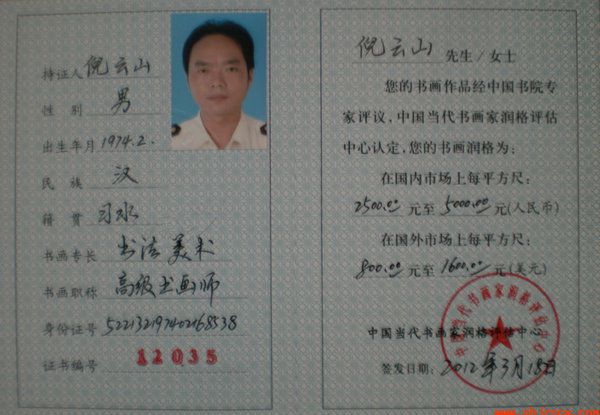 持证人 倪云山
性 别 男
出生年月 1974.2.
民 族 汉
籍 贯 习水
书画专长 书法美术
书画职称 高级书画师
身份证号 522132197402168538
证书编号 12035
倪云山 先生/女士
您的书画作品经中国书院专
家评议,中国当代书画家润格评估
中心认定,您的书画润格为:
在国内市场上每平方尺:
2500.00 元至 5000.00 元(人民币)
在国外市场上每平方尺:
800.00 元至 1600.00 元(美元)
中国当代书画家润格评估中心
中国当代书画家润格评估中心
签发日期: 2012年3月18日